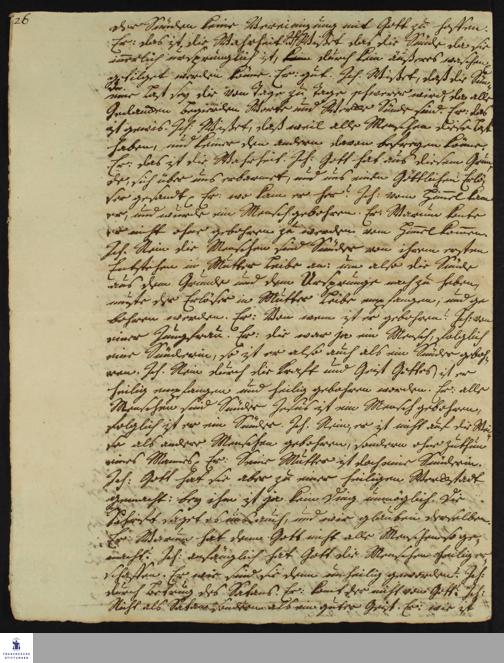 26
der Sünden keine Vereinigung mit Gott zu hoffen.
Er: das ist die Wahrheit. Ich: Wisset das die Sünde da sie
innerlich ist, kan durch kein äußeres waschen
getilget werden könne. Er: gut. Ich: Wisset, daß die Sün
eine Last sey die von Tage zu Tage schwerer wird, da alle
Gedancken Begierden Worte und Wercke Sünde sind. Er: das
ist gewis. Ich: Wisset, daß weil alle Menschen diese Last
haben, und keiner den andern davon befreyen könne.
Er: das ist die Wahrheit. Ich: Gott hat aus diesem Grun
de, sich über uns erbarmet, und uns einen Göttlichen Erlö
ser gesandt. Er: wo kam er her? Ich: vom Himel kam
er, und wurde ein Mensch gebohren. Er: Warum konte
er nicht ohne gebohren zu werden vom Himel kommen.
Ich: Nein die Menschen sind Sünder von ihrem ersten
Entstehen in Mutter Leibe an: um also die Sünde
aus dem Grunde und dem Ursprunge nach zu heben,
muste der Erlöser in Mutter Leibe empfangen, und ge
bohren werden. Er: Von wem ist er gebohren? Ich: von
einer Jungfrau. Er: die war ja ein Mensch, folglich
eine Sünderin, so ist er also auch als ein Sünder geboh
ren. Ich: Nein durch die Kraft und Geist Gottes, ist er
heilig empfangen und heilig gebohren worden. Er: alle
Menschen sind Sünder Jesus ist ein Mensch gebohren,
folglich ist er ein Sünder. Ich: Nein, er ist nicht auf die Wei
se als andere Menschen gebohren, sondern ohne zuthun
eines Mannes. Er: Seine Mutter ist doch eine Sünderin.
Ich: Gott hat sie aber zu einer heiligen Werckstadt
gemacht: bey ihm ist ja kein Ding unmöglich. Die
Schrift saget es uns auch, und wir glauben derselben.
Er: Warum hat denn Gott nicht alle Menschen so ge
macht? Ich: anfänglich hat Gott die Menschen heilig er
schaffen. Er: wie sind sie denn unheilig geworden? Ich:
durch Betrug des Satans. Er: komt der nicht von Gott? Ich:
Nicht als Satan sondern als ein guter Geist. Er: wie ist
FRANCKESCHE
STIFTUNGEN